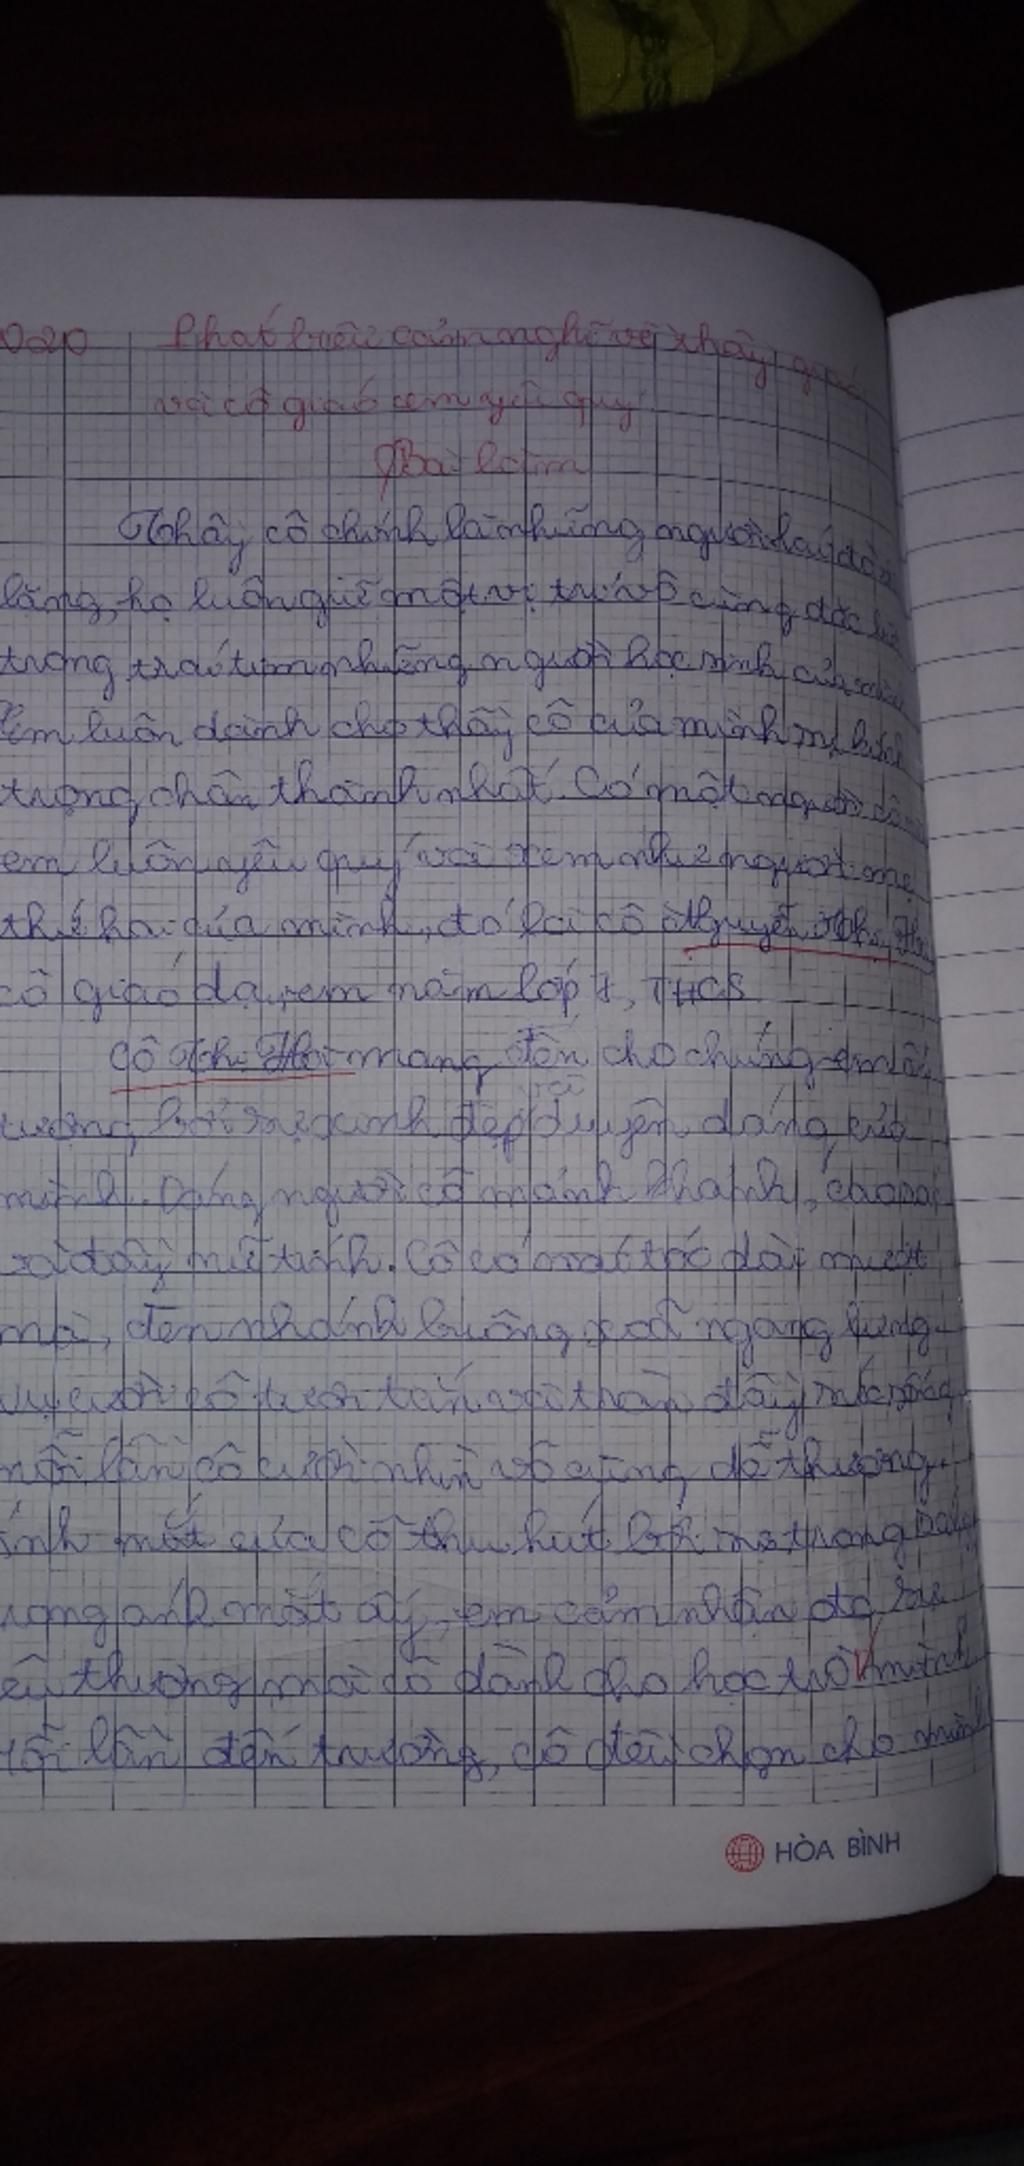 2020 Phát biểu cảm nghĩ về thầy giáo
và cô giáo em yêu quý
Bài làm
Thầy cô chính là những người lái đò
lặng, họ luôn giữ một vị trí vô cùng đặc biệt
trong trái tim những người học sinh của mình
Em luôn dành cho thầy cô của mình
trọng chân thành nhất. Có một người cô mà
em luôn yêu quý và xem như người mẹ
thứ hai của mình, đó là cô Nguyễn Thị
cô giáo dạy em năm lớp 7, THCS
Cô Thị mang đến cho chúng em ấn
tượng bởi đẹp và duyên dáng của
mình. Dáng người cô mảnh khảnh, cao
và đầy nữ tính. Cô có mái tóc dài mượt
mà, đen nhánh buông xoã ngang lưng
Nụ cười cô tươi tắn và tràn đầy sức sống
mỗi lần cô cười nhìn vô cùng dễ thương.
ánh mắt của cô thu hút bởi mà trong
trong ánh mắt ấy, em cảm nhận được
yêu thương mà cô dành cho học trò mình
Mỗi lần đến trường, cô đều chọn cho mình
HÒA BÌNH